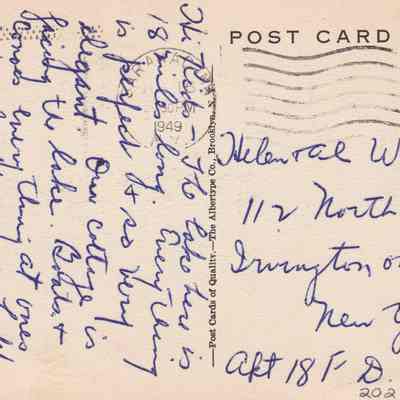 Hi Folks - The lake here is
18 miles long. Everything
is perfect & so very
elegant. Our cottage is
facing the lake. Boats &
canoes everything at ones
Post Cards of Quality.—The Albertype Co., Brooklyn, N. Y.
1949
POST CARD
Helen & Al W
112 North
Irvington on
New Y
Apt 18 F D.
202